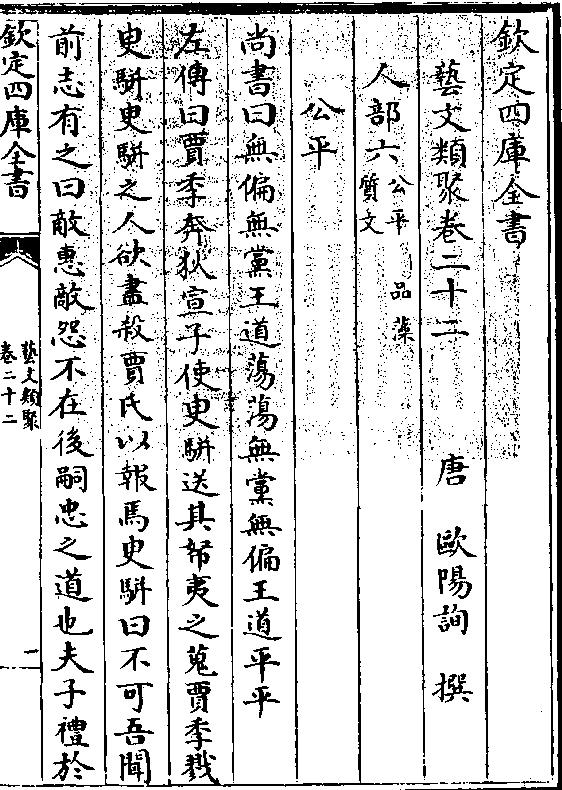 欽定四庫全書
藝文類聚卷二十二 唐 歐陽詢 撰
人部六 公平 品藻
質文
公平
尚書曰無偏無黨王道蕩蕩無黨無偏王道平平
左傳曰賈季奔狄宣子使臾駢送其帑夷之蒐賈季戮
臾駢臾駢之人欲盡殺賈氏以報焉臾駢曰不可吾聞
前志有之曰敵惠敵怨不在後嗣忠之道也夫子禮於
欽定四庫全書
藝文類聚
卷二十二
一